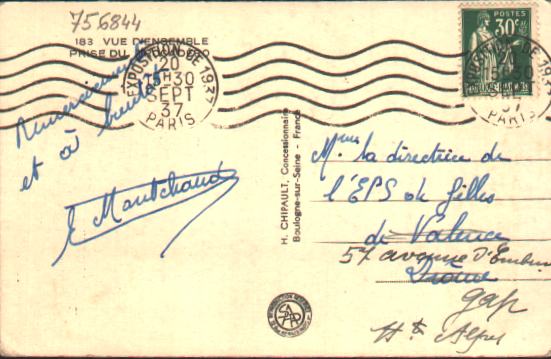 756844
183 VUE D'ENSEMBLE
PRISE DU
EXPOSITION DE 1937
20
15H30
SEPT
37
PARIS
POSTES
30c
EXPOSITION DE 1937
PARIS
Remerciements
et à bientôt
E Montchaud
H. CHIPAULT, Concessionnaire
Boulogne-sur-Seine - France
Mme la directrice de
l'EPS de filles
de Valence
57 avenue d'Embrun
Drôme
Gap
Htes Alpes